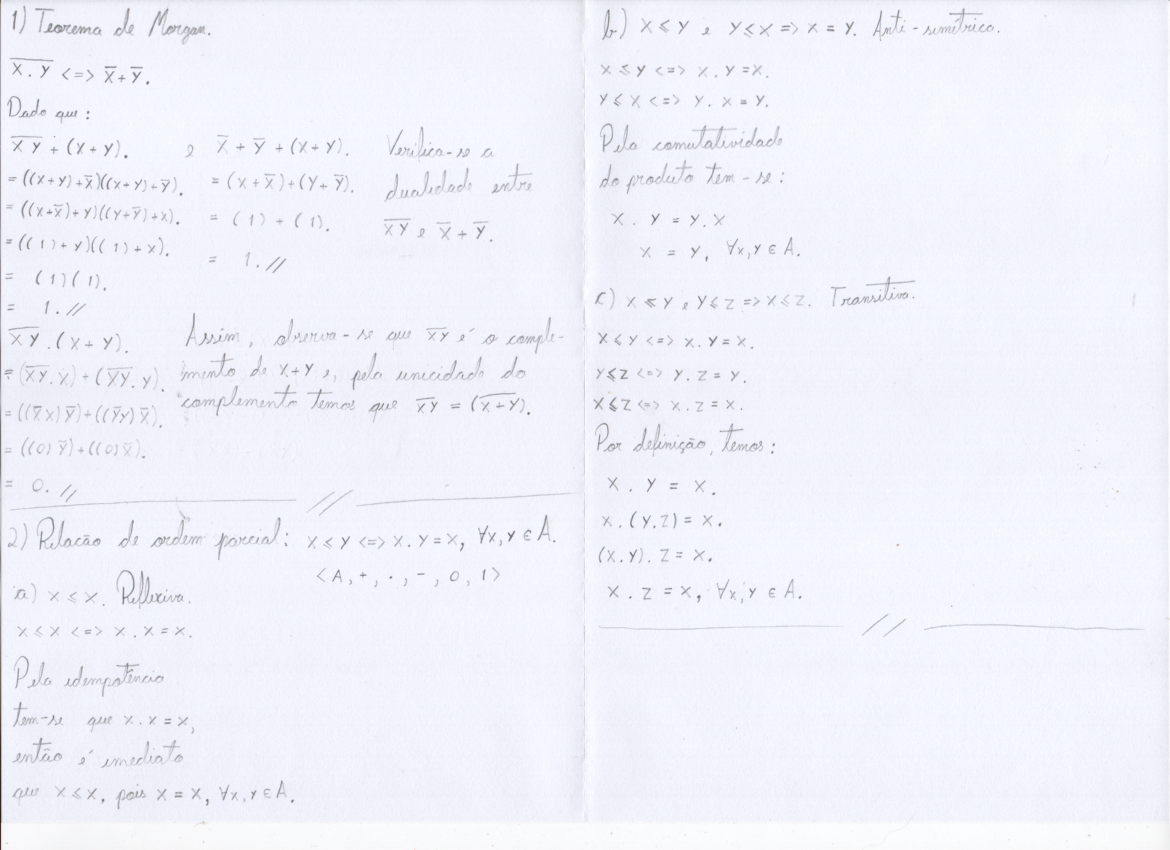 1) Teorema de Morgan.
\overline{X . Y} <=> X̅ + Y̅.
Dado que:
\overline{X Y} + (X + Y).
= ((X+Y)+X̅)((X+Y)+Y̅).
= ((X+X̅)+Y)((Y+Y̅)+X).
= ((1)+Y)((1)+X).
= (1)(1).
= 1.//
e X̅ + Y̅ + (X+Y).
= (X+X̅)+(Y+Y̅).
= (1) + (1).
= 1.//
Verifica-se a
dualidade entre
\overline{XY} e X̅ + Y̅.
\overline{XY} . (X + Y).
= (\overline{XY} . X) + (\overline{XY} . Y).
= ((X̅X)Y̅)+((Y̅Y)X̅).
= ((0)Y̅)+((0)X̅).
= 0.//
Assim, observa-se que \overline{XY} é o comple-
mento de X+Y e, pela unicidade do
complemento temos que \overline{XY} = (\overline{X+Y}).
2) Relacão de ordem parcial: X ≤ Y <=> X . Y = X, ∀x,y ∈ A.
<A, +, ., -, 0, 1>
a) X ≤ X. Reflexiva.
X ≤ X <=> X . X = X.
Pela idempotência
tem-se que X . X = X,
então é imediato
que X ≤ X, pois X = X, ∀x,y ∈ A.
b) X ≤ Y e Y ≤ X => X = Y. Anti-simétrica.
X ≤ Y <=> X . Y = X.
Y ≤ X <=> Y . X = Y.
Pela comutatividade
do produto tem-se:
X . Y = Y . X
X = Y, ∀x,y ∈ A.
c) X ≤ Y e Y ≤ Z => X ≤ Z. Transitiva.
X ≤ Y <=> X . Y = X.
Y ≤ Z <=> Y . Z = Y.
X ≤ Z <=> X . Z = X.
Por definição, temos:
X . Y = X.
X . (Y . Z) = X.
(X . Y) . Z = X.
X . Z = X, ∀x,y ∈ A.
//